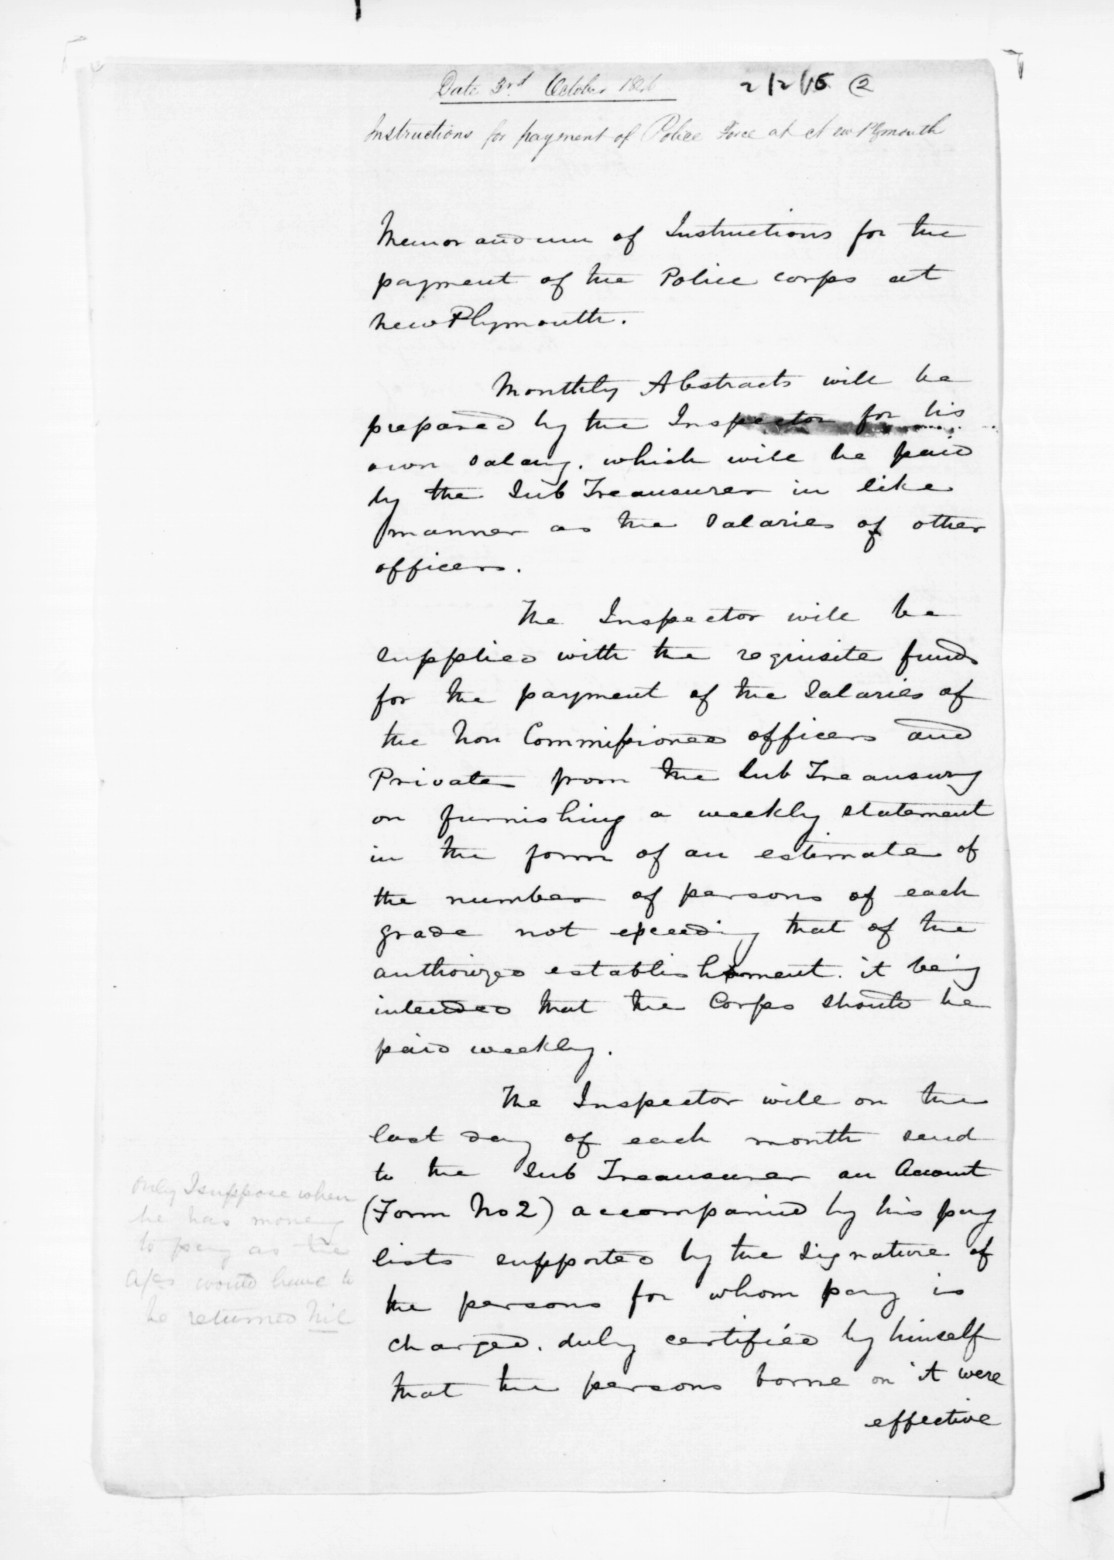 Date 3rd October 1846
2/2/15 (2)
Instructions for payment of Police Force at New Plymouth
Memorandum of Instructions for the
payment of the Police corps at
New Plymouth.
Monthly Abstracts will be
prepared by the Inspector for his
own Salary. which will be paid
by the Sub Treausurer in like
manner as the Salaries of other
officers.
The Inspector will be
supplied with the requisite funds
for the payment of the Salaries of
the Non Commissioned officers and
Privates from the Sub Treausury
on furnishing a weekly statement
in the form of an estimate of
the number of persons of each
grade not exceeding that of the
authorized establishment. it being
intended that the Corps should be
paid weekly.
The Inspector will on the
last day of each month send
to the Sub Treausurer an Account
(Form No 2) accompanied by his pay
lists supported by the Signature of
the persons for whom pay is
charged. duly certified by himself
that the persons borne on it were
effective
only I suppose when
he has money
to pay as the
A/cs would have to
be returned Nil